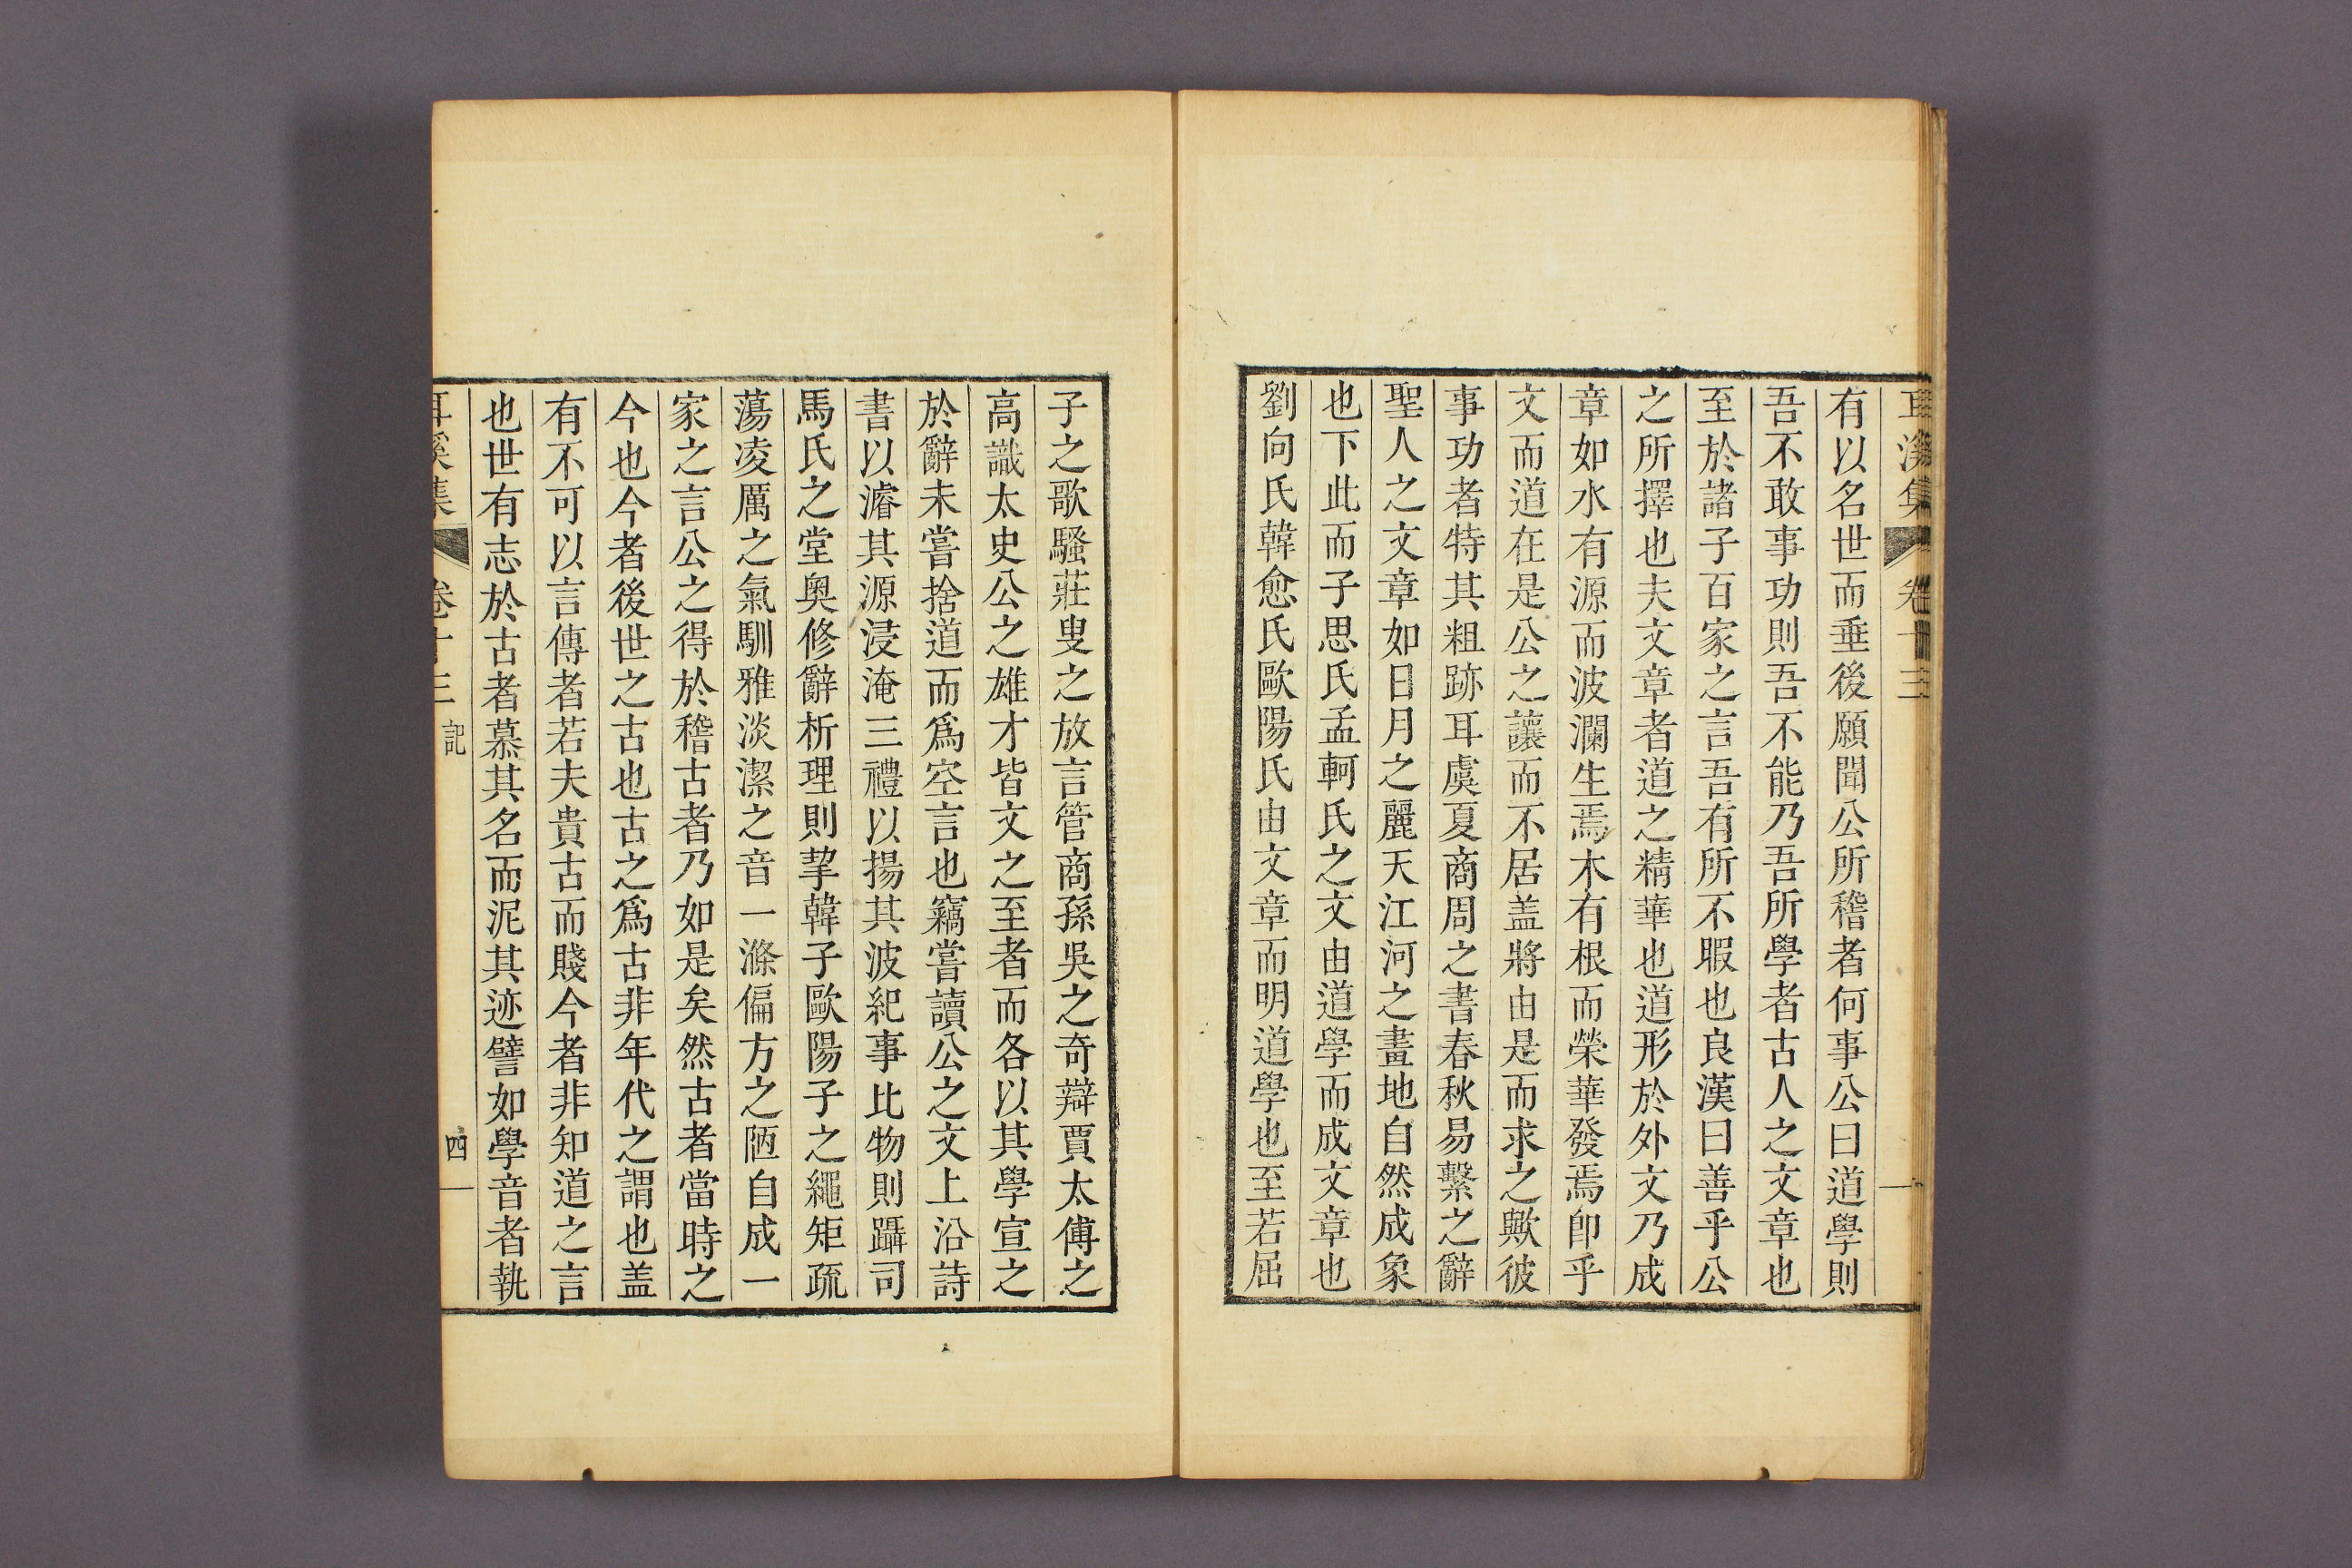 耳溪集 卷十三
有以名世而垂後願聞公所稽者何事公曰道學則
吾不敢事功則吾不能乃吾所學者古人之文章也
至於諸子百家之言吾有所不暇也良漢曰善乎公
之所擇也夫文章者道之精華也道形於外文乃成
章如水有源而波瀾生焉木有根而榮華發焉卽乎
文而道在是公之讓而不居盖將由是而求之歟彼
事功者特其粗跡耳虞夏商周之書春秋易繫之辭
聖人之文章如日月之麗天江河之畫地自然成象
也下此而子思氏孟軻氏之文由道學而成文章也
劉向氏韓愈氏歐陽氏由文章而明道學也至若屈
子之歌騷莊叟之放言管商孫吳之奇辯賈太傅之
高識太史公之雄才皆文之至者而各以其學宣之
於辭未嘗捨道而爲空言也竊嘗讀公之文上沿詩
書以濬其源浸淹三禮以揚其波紀事比物則躡司
馬氏之堂奧修辭析理則挈韓子歐陽子之繩矩疏
蕩凌厲之氣馴雅淡潔之音一滌偏方之陋自成一
家之言公之得於稽古者乃如是矣然古者當時之
今也今者後世之古也古之爲古非年代之謂也盖
有不可以言傳者若夫貴古而賤今者非知道之言
也世有志於古者慕其名而泥其迹譬如學音者執
耳溪集 卷十三 記 四